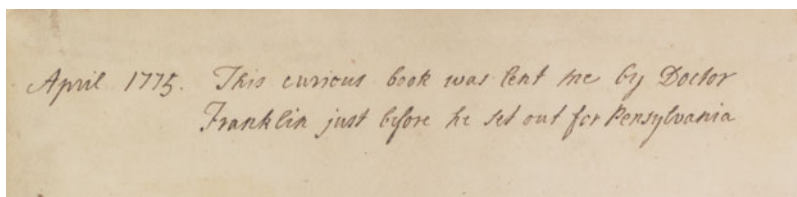 April 1775. This curious book was lent me by Doctor
Franklin just before he set out for Pensylvania